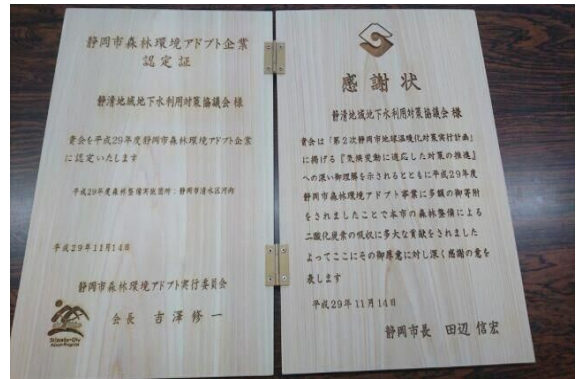 静岡市森林環境アドプト企業
認定証
静清地域地下水利用対策協議会様
貴会を平成29年度静岡市森林環境アドプト企業
に認定いたします
平成29年度森林整備実施箇所:静岡市清水区河内
平成29年11月14日
静岡市森林環境アドプト実行委員会
会長 吉澤修一
感謝状
静清地域地下水利用対策協議会様
貴会は「第2次静岡市地球温暖化対策実行計画」
に掲げる『気候変動に適応した対策の推進』
への深い御理解を示されるとともに平成29年度
静岡市森林環境アドプト事業に多額の御寄附
をされましたことで本市の森林整備による
二酸化炭素の吸収に多大な貢献をされました
よってここにその御厚意に対し深く感謝の意を
表します
平成29年11月14日
静岡市長 田辺信宏